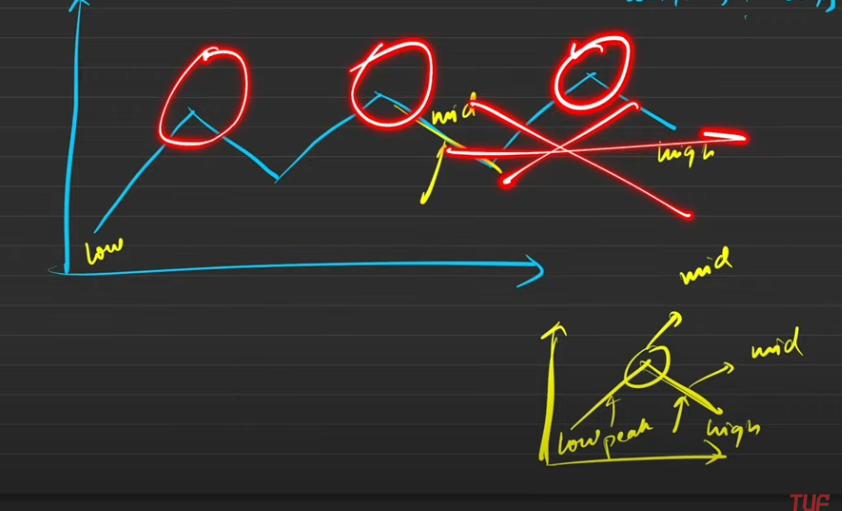 mid
high
low
mid
mid
low peak high
TUF